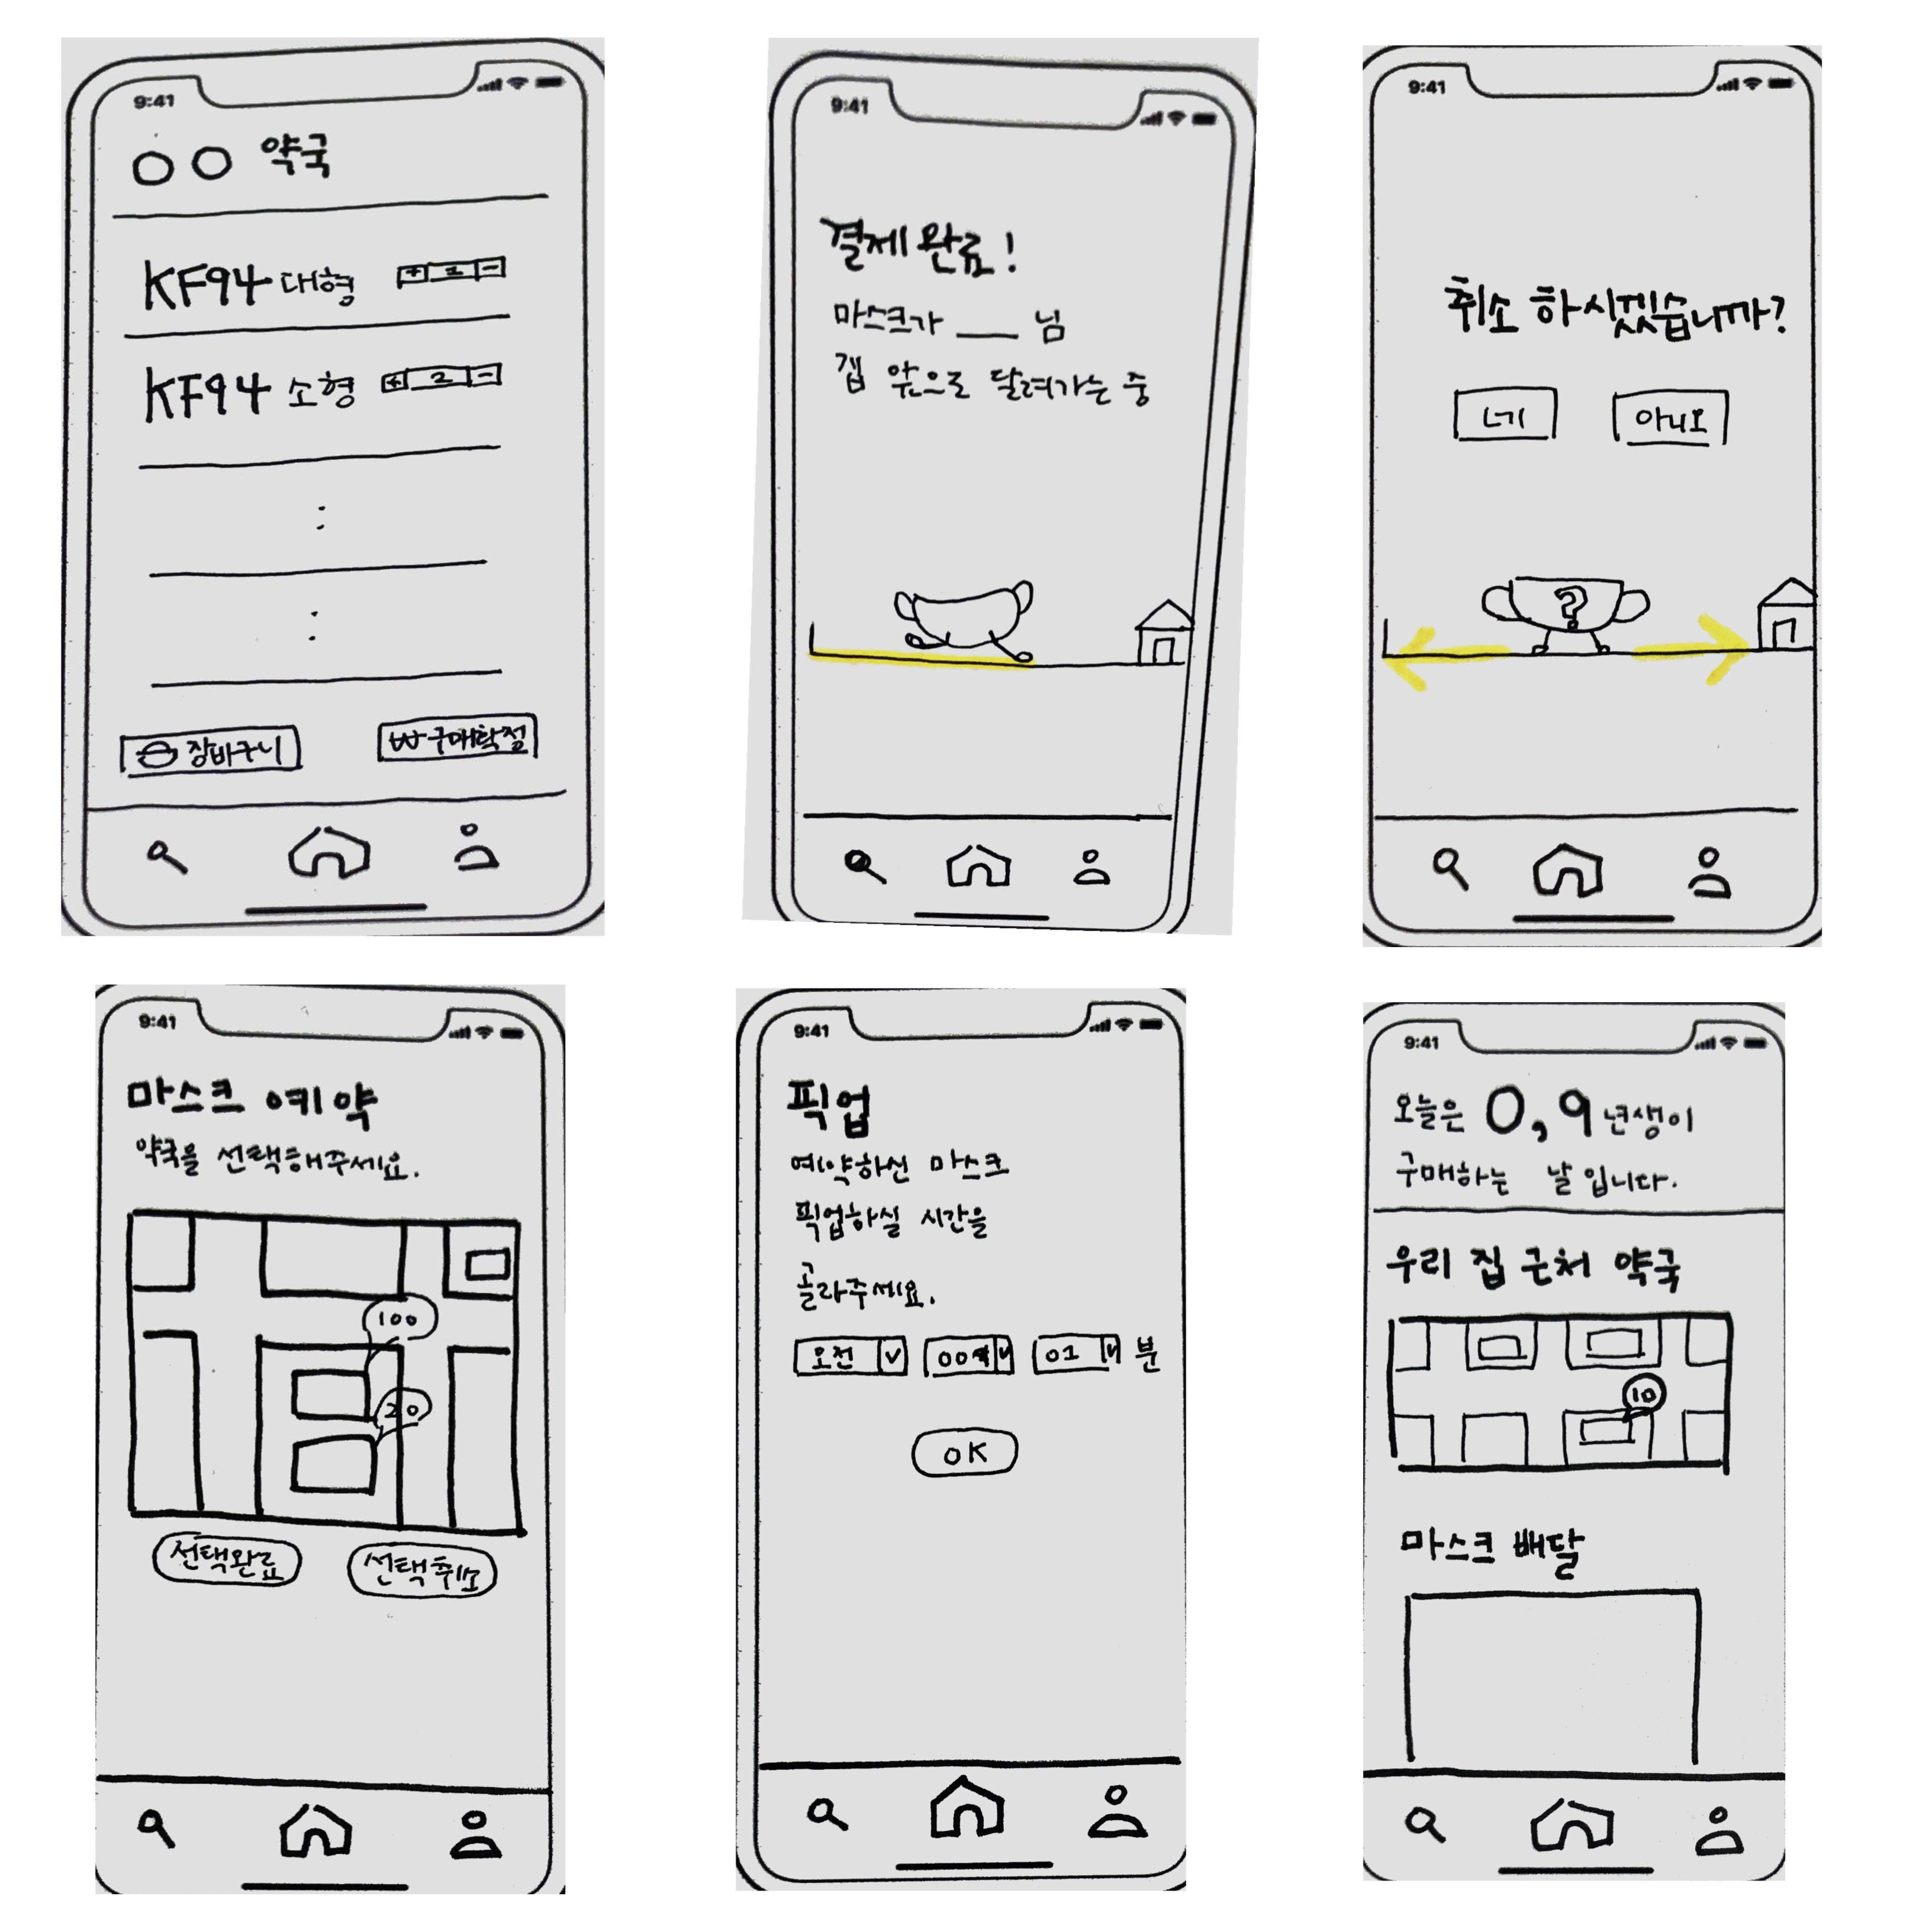 9:41
○○ 약국
KF94 대형 + 1 -
KF94 소형 + 2 -
장바구니
₩ 구매확정
9:41
결제 완료!
마스크가 ___ 님
집 앞으로 달려가는 중
9:41
취소 하시겠습니까?
네 아니오
?
9:41
마스크 예약
약국을 선택해주세요.
100
20
선택완료
선택취소
9:41
픽업
예약하신 마스크
픽업하실 시간을
골라주세요.
오전 01 분
OK
9:41
오늘은 0, 9 년생이
구매하는 날 입니다.
우리 집 근처 약국
10
마스크 배달